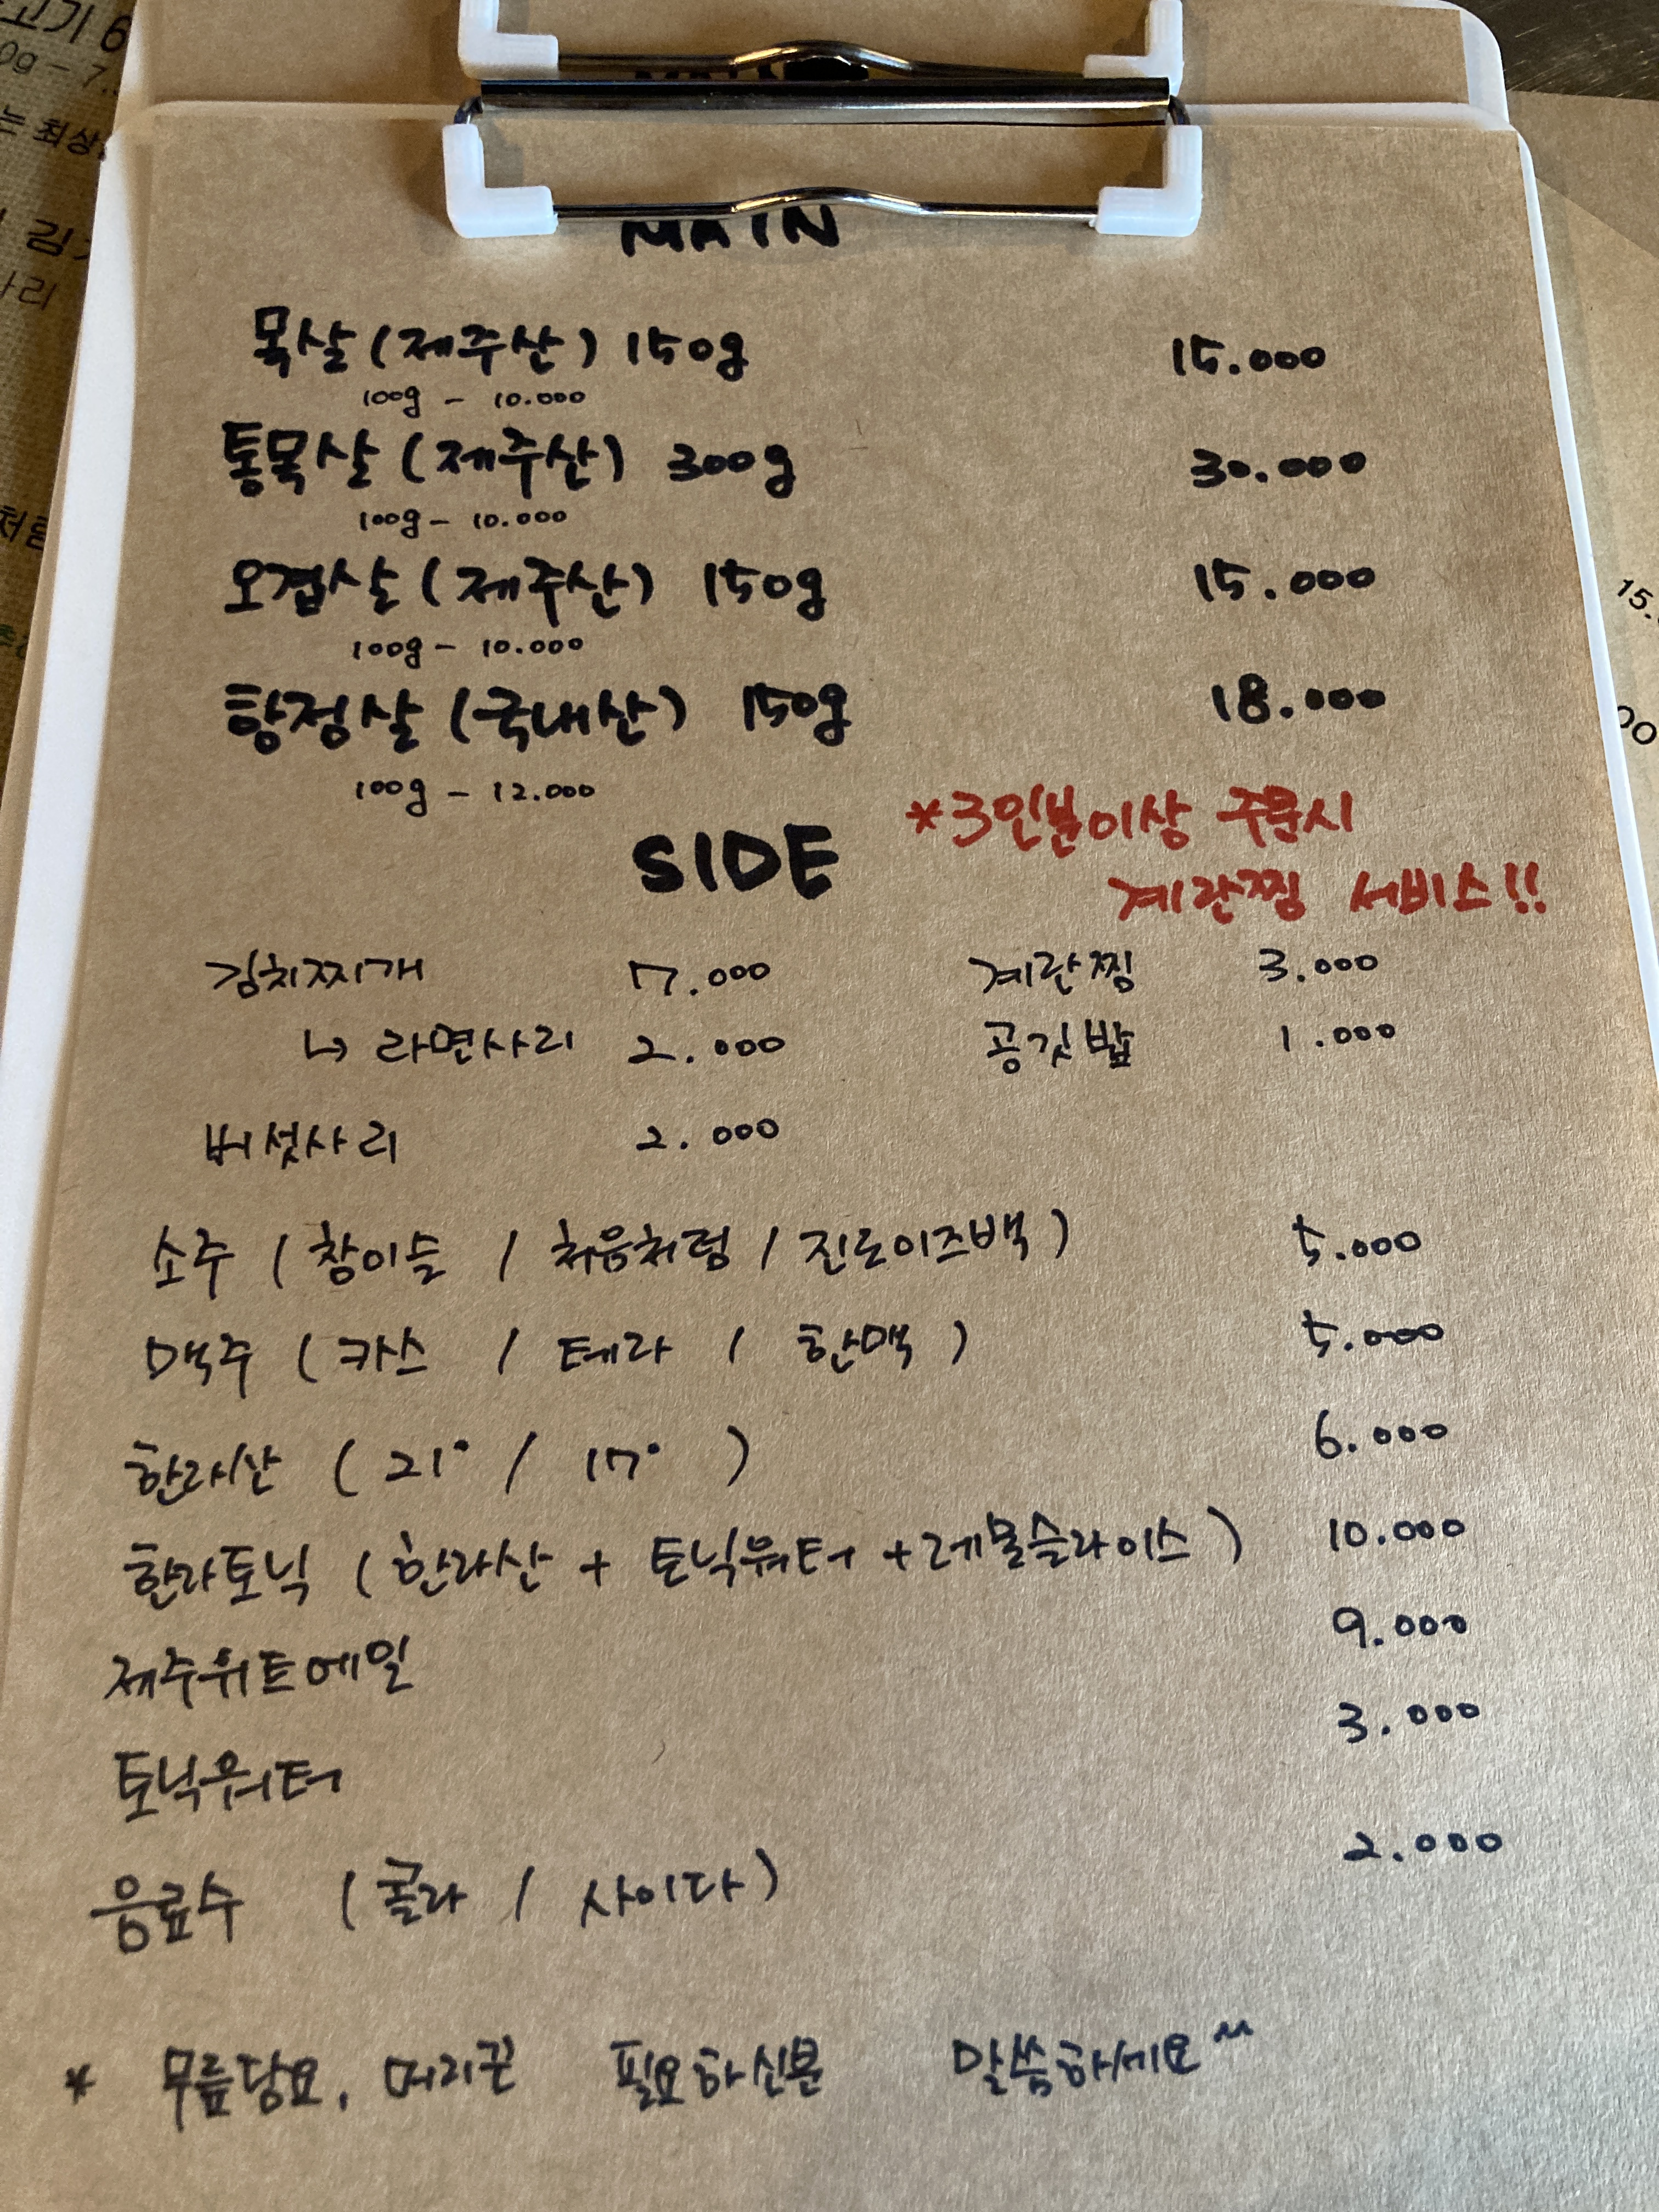 MAIN
목살(제주산) 150g 15.000
100g - 10.000
통목살(제주산) 300g 30.000
100g - 10.000
오겹살(제주산) 150g 15.000
100g - 10.000
항정살(국내산) 150g 18.000
100g - 12.000
*3인분이상 주문시
계란찜 서비스!!
SIDE
김치찌개 7.000 계란찜 3.000
↳ 라면사리 2.000 공깃밥 1.000
버섯사리 2.000
소주 (참이슬 / 처음처럼 / 진로이즈백) 5.000
맥주 (카스 / 테라 / 한맥) 5.000
한라산 (21° / 17°) 6.000
한라토닉 (한라산 + 토닉워터 + 레몬슬라이스) 10.000
제주위트에일 9.000
토닉워터 3.000
음료수 (콜라 / 사이다) 2.000
* 무릎담요, 머리끈 필요하신분 말씀하세요^^
고기 6
0g - 7.
는 최상
림
사리
처음
15.
00